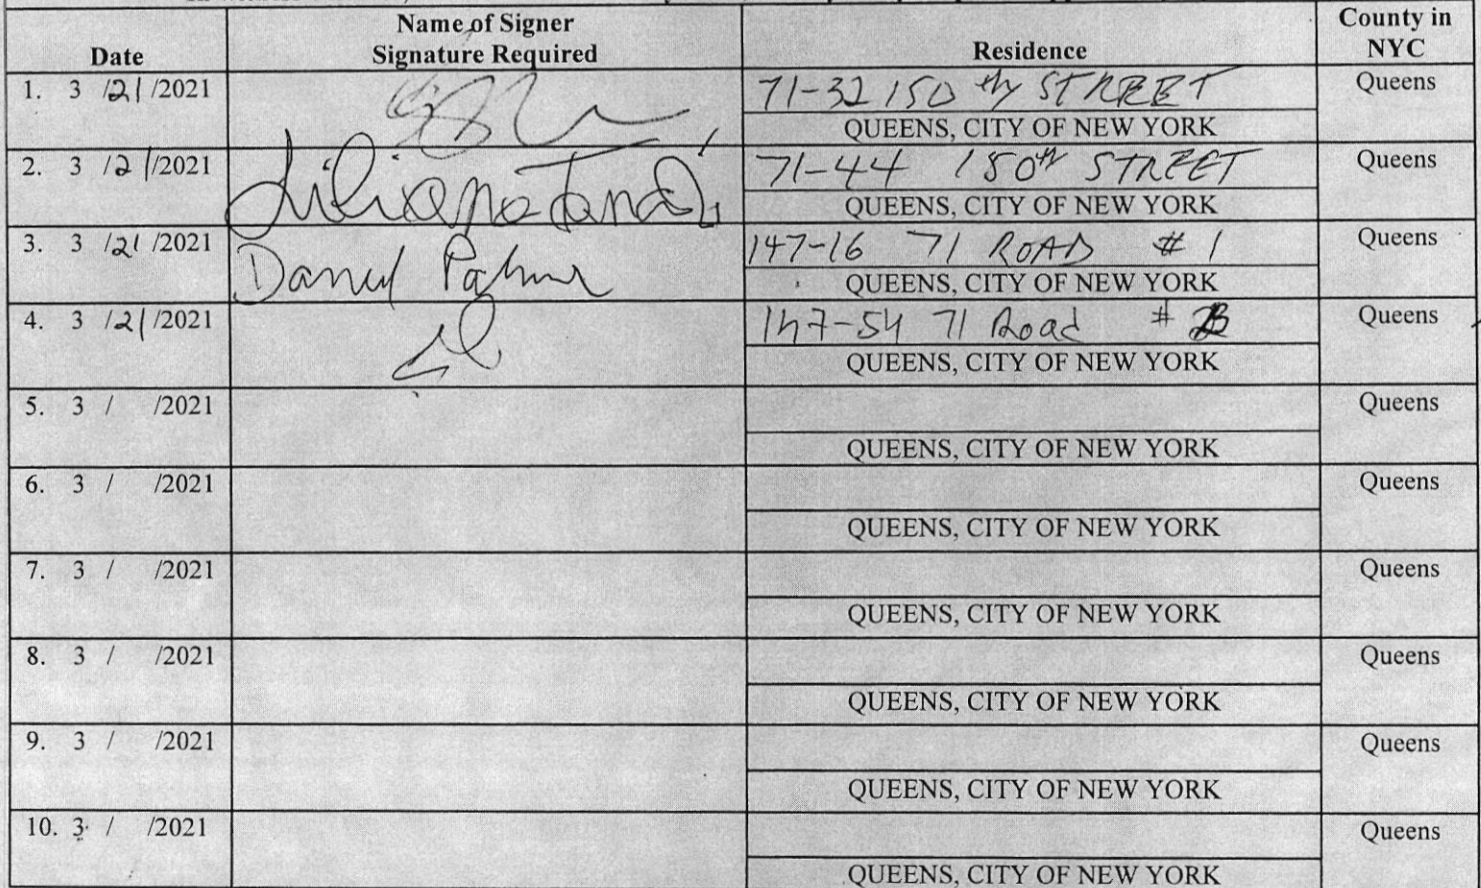 Date
Name of Signer
Signature Required
Residence
County in
NYC
1. 3 /21/2021
71-32 150 th STREET
QUEENS, CITY OF NEW YORK
Queens
2. 3 /21/2021
71-44 150th STREET
QUEENS, CITY OF NEW YORK
Queens
3. 3 /21/2021
147-16 71 ROAD # 1
QUEENS, CITY OF NEW YORK
Queens
4. 3 /21/2021
147-54 71 Road #
QUEENS, CITY OF NEW YORK
Queens
5. 3 / /2021
QUEENS, CITY OF NEW YORK
Queens
6. 3 / /2021
QUEENS, CITY OF NEW YORK
Queens
7. 3 / /2021
QUEENS, CITY OF NEW YORK
Queens
8. 3 / /2021
QUEENS, CITY OF NEW YORK
Queens
9. 3 / /2021
QUEENS, CITY OF NEW YORK
Queens
10. 3 / /2021
QUEENS, CITY OF NEW YORK
Queens